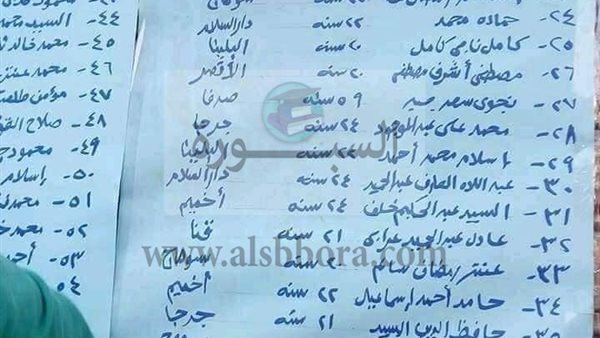 ٢٤- حماده محمد ٢٢ سنه دار السلام
٢٥- كامل ناجي كامل ٢٠ سنه البلينا
٢٦- مصطفى أشرف مصطفى ٢٠ سنه الأقصر
٢٧- نجوى سعد سيد ٥٩ سنه صدفا
٢٨- محمد على عبد الموجود ٢٤ سنه جرجا
٢٩- إسلام محمد أحمد سنه البلينا
٣٠- عبد اللاه العارف عبد الحميد ٢٤ سنه دار السلام
٣١- السيد عبد الحكيم خلف ٢٤ سنه أخميم
٣٢- عادل عبد الحميد ٢١ سنه قنا
٣٣- عنتر رمضان سالم سنه سوهاج
٣٤- حامد أحمد إسماعيل ٢٢ سنه أخميم
٣٥- حافظ الدين السيد ٢١ سنه جرجا
٤٤- السيد
٤٥- محمد خالد
٤٦- محمد عنتر
٤٧- مؤمن
٤٨- صلاح
٤٩- محمود
٥٠- إسلام
٥١- محمد
٥٢- محمد
٥٣-
٥٤
السبورة
www.alsbbora.com